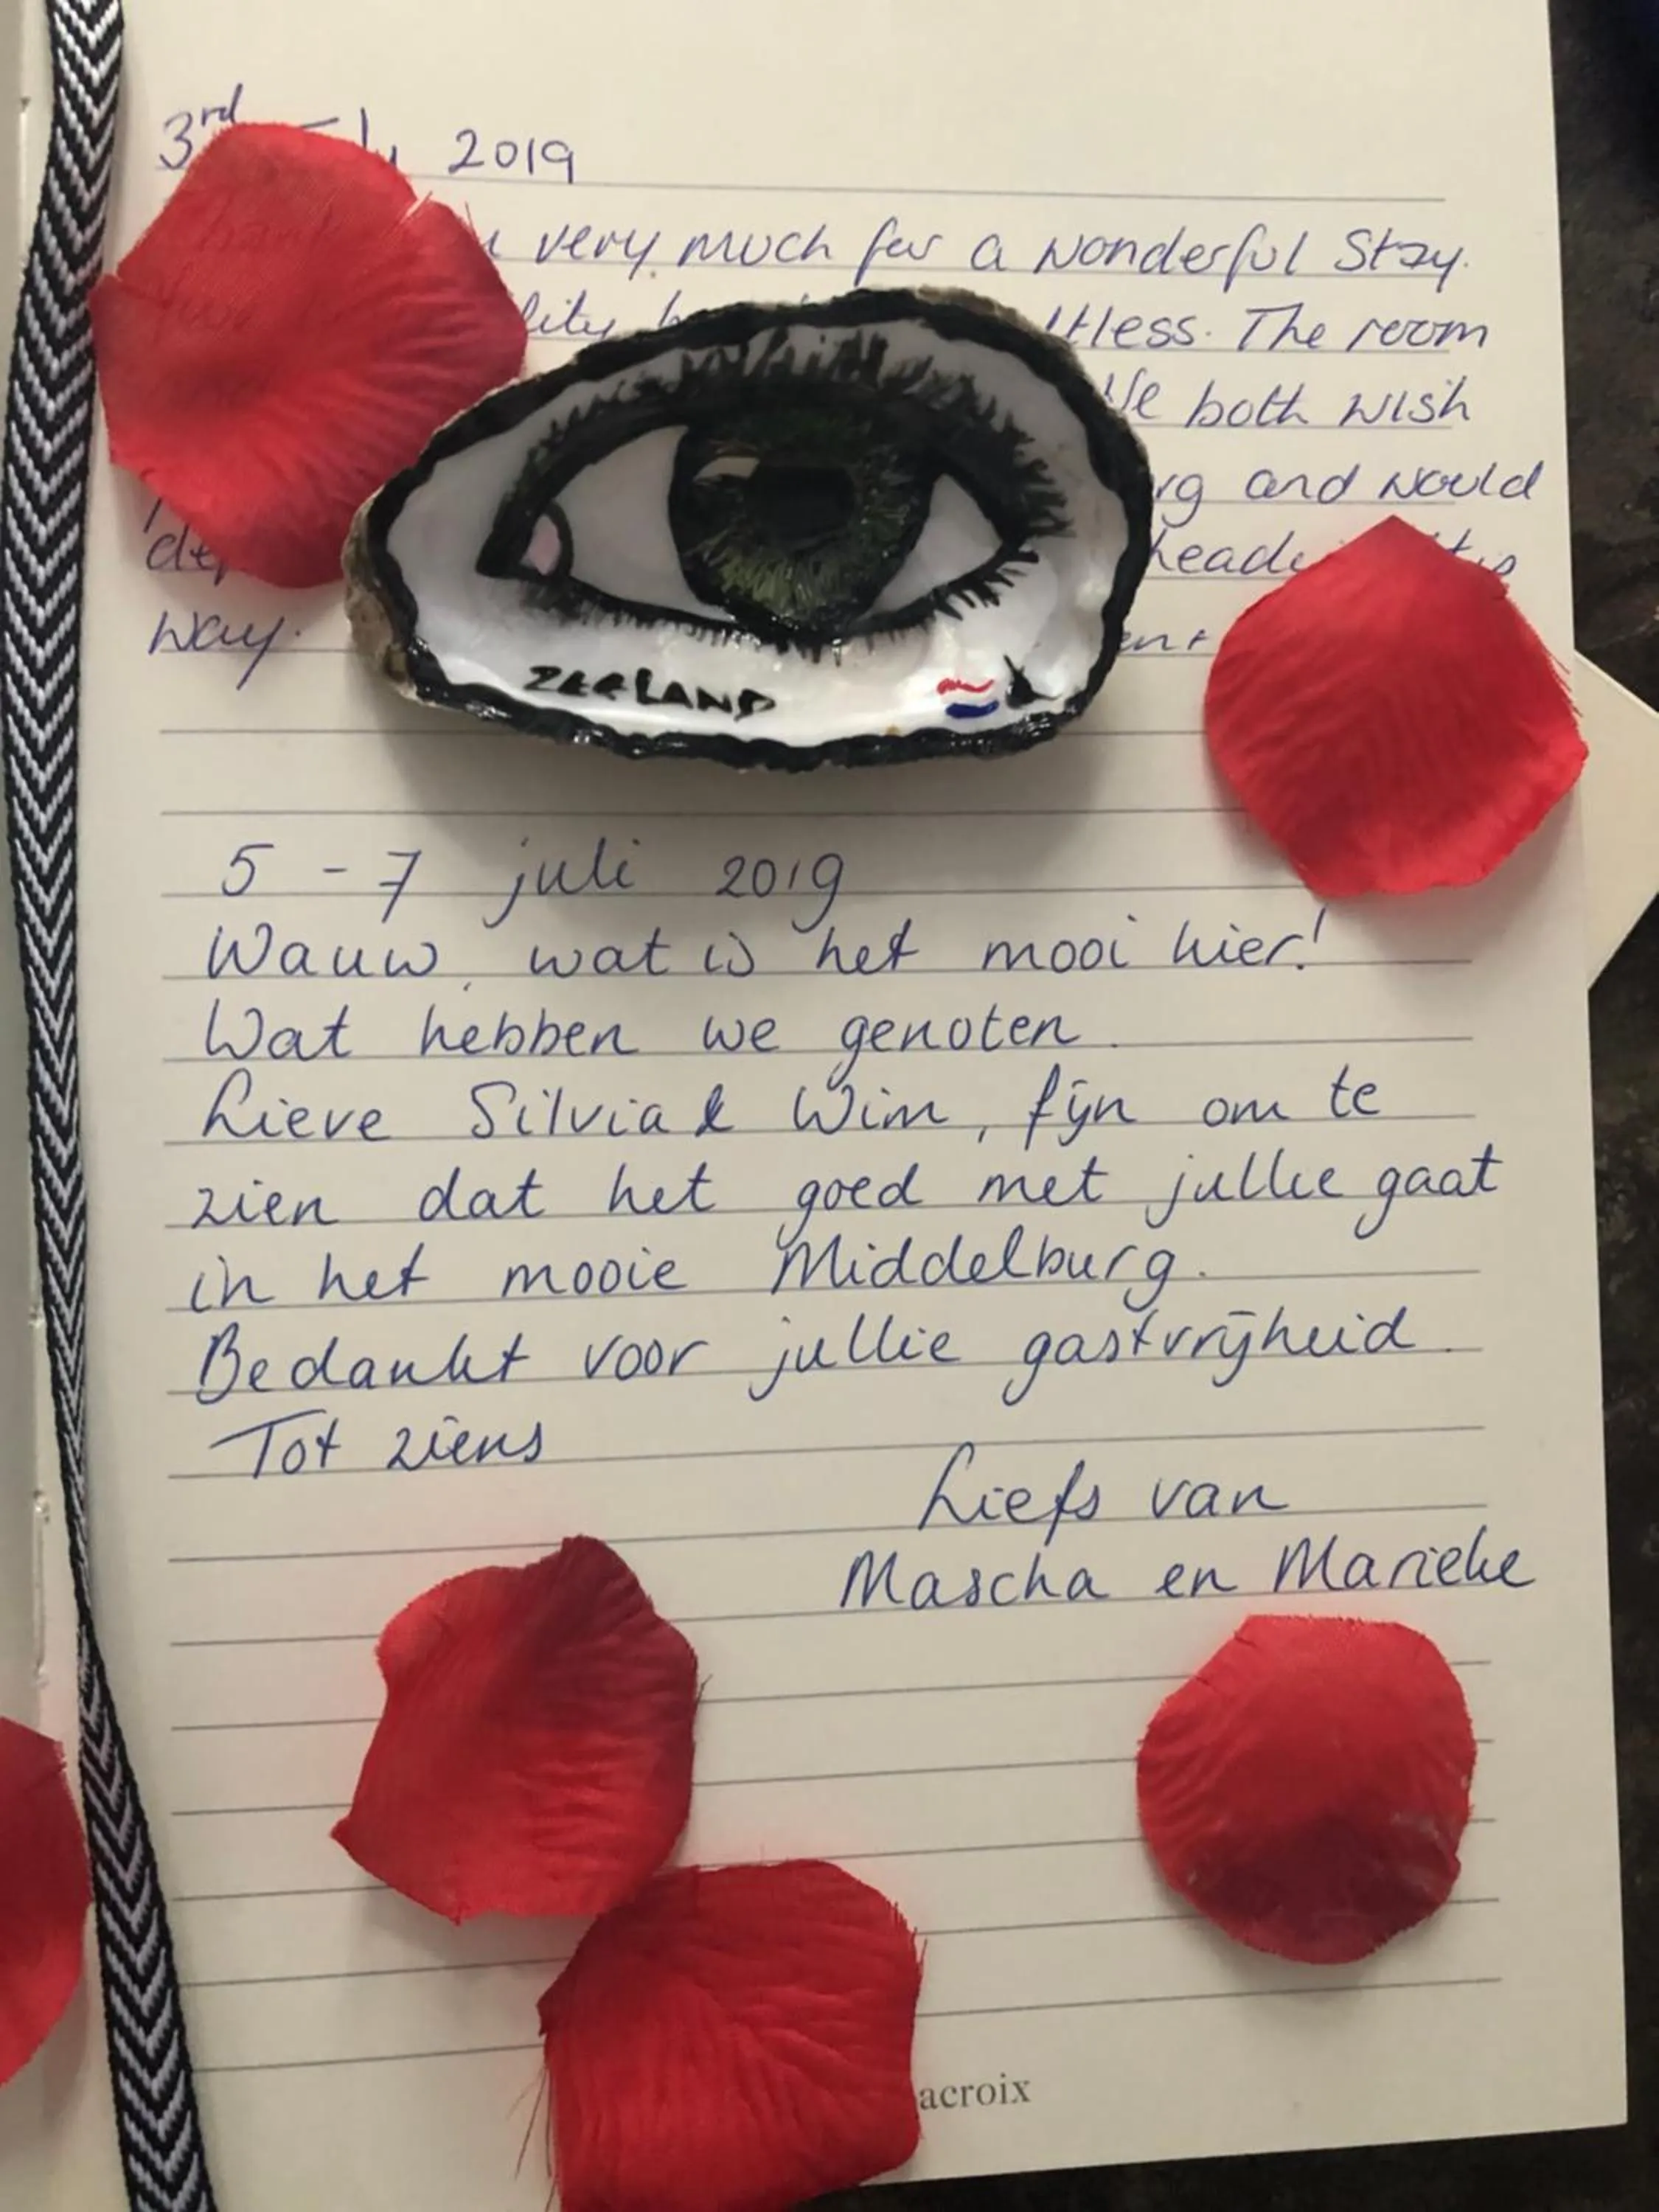 3rd 2019
very much for a wonderful Stay.
The room
both wish
and would
way.
ZEELAND
5 - 7 juli 2019
Wauw, wat is het mooi hier!
Wat hebben we genoten.
Lieve Silvia & Wim, fijn om te
zien dat het goed met jullie gaat
in het mooie Middelburg.
Bedankt voor jullie gastvrijheid.
Tot ziens
Liefs van
Mascha en Marieke
acroix